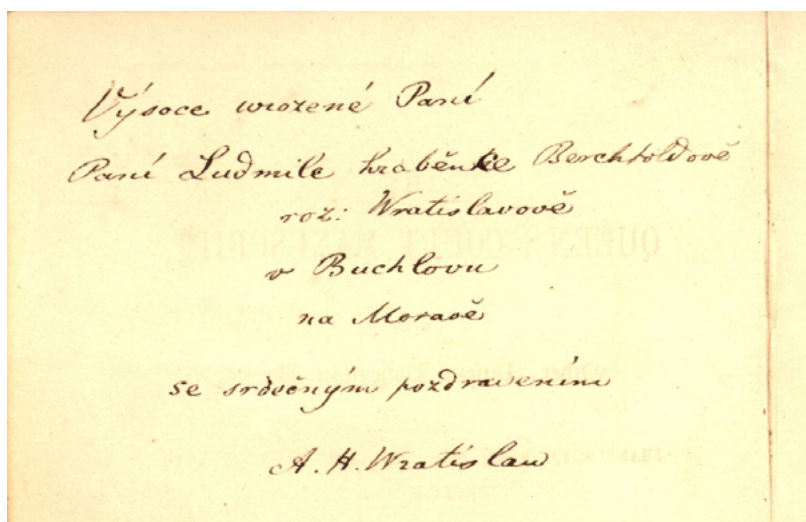 Výsoce urozené Paní
Paní Ludmile hraběnke Berchtoldově
roz: Wratislavově
v Buchlovu
na Moravě
se srdečným pozdravením
A. H. Wratislaw
QUEEN'S COURT MANUSCRIPT,